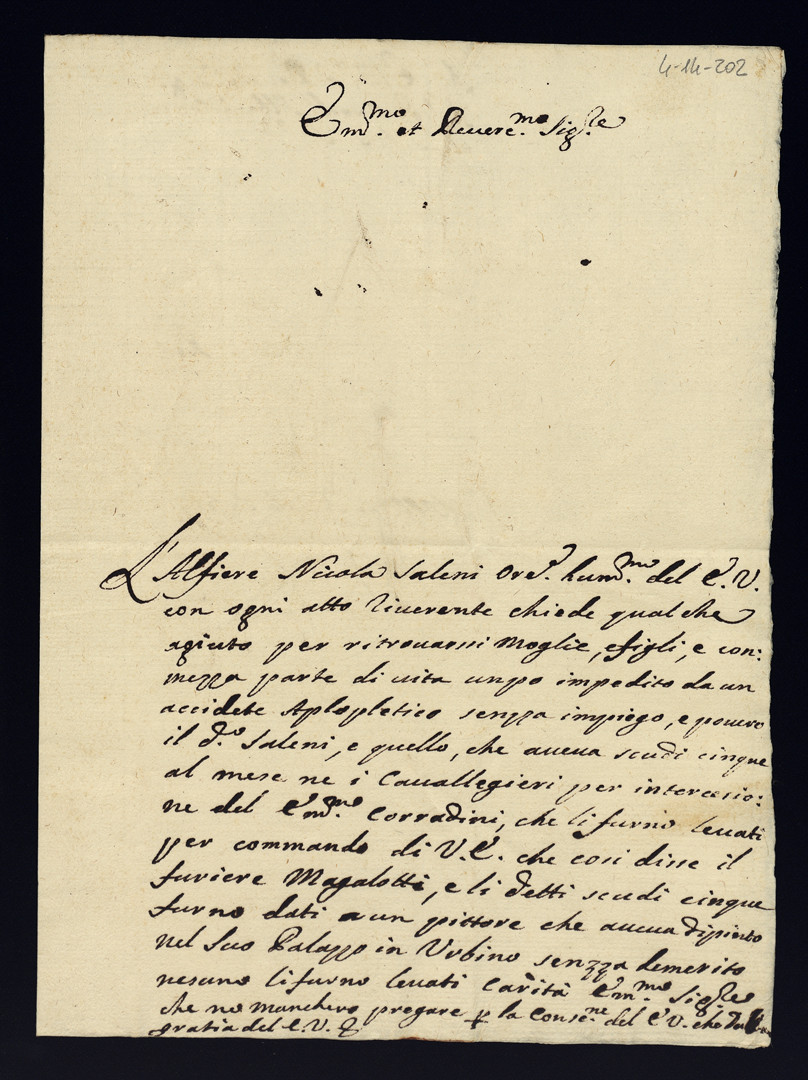 4-14-202
Em.mo et Revere.mo Sig.re
L'Alfiere Nicola Saleni Ore. hum.mo del E.V.
con ogni atto riverente chiede qualche
agiuto per ritrovarsi Moglie, e figli, e con:
mezza parte di vita unpo impedito da un
accidete Aplopletico senzza impiego, e povero
il d.o Saleni, e quello, che aveva scudi cinque
al mese ne i Cavallegieri per intercesio:
ne del Em.mo Corradini, che li furno levati
per commando di V.E. che cosi disse il
furiere Magalotti, e li detti scudi cinque
furno dati a un pittore che aveva dipinto
nel Suo Palazzo in Urbino senzza demerito
nesuno li furno levati Carità Em.mo Sig.re
che no manchero pregare p la Conse.ne del E V. che
gratia del E.V. &